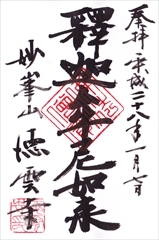 奉拝 平成二十八年一月七日
釋迦牟尼如来
妙峯山 徳雲寺